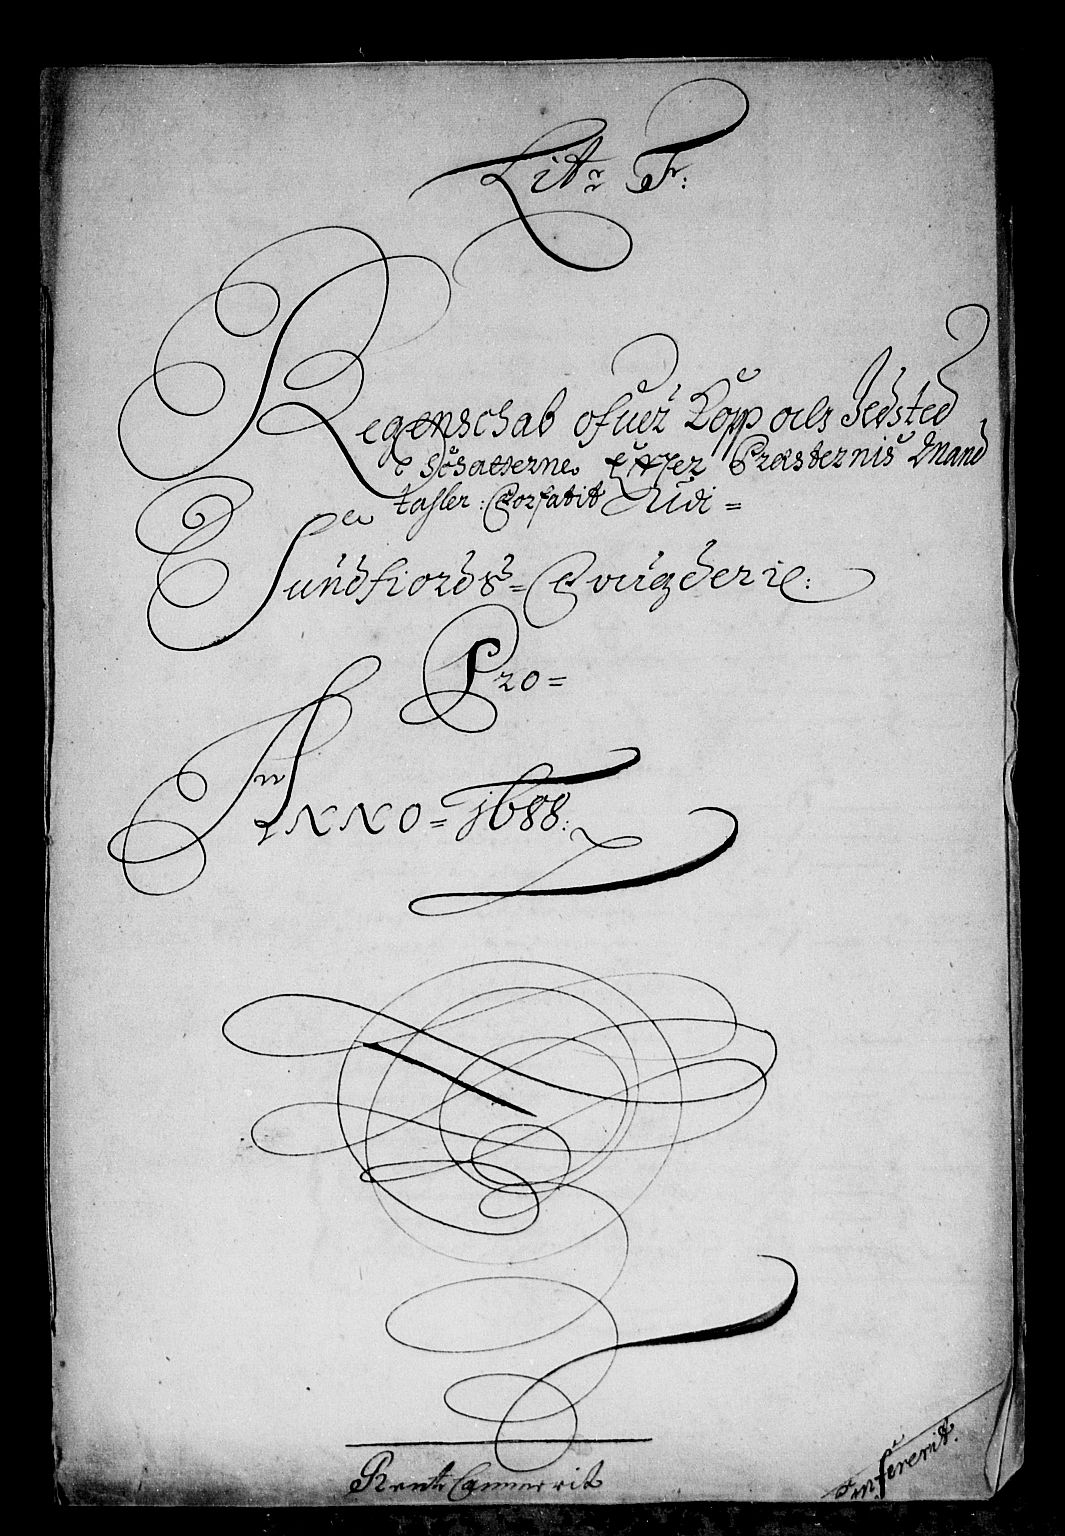 Litr F:
Regenschab ofuer Kopp och Jldsted
Schatterne, efter Præsternis Mand
tahler: Forfatit Udi =
Sundfiords = Fougderie:
Pro =
Anno = 1688:
Rente Cammerit
Infererit.